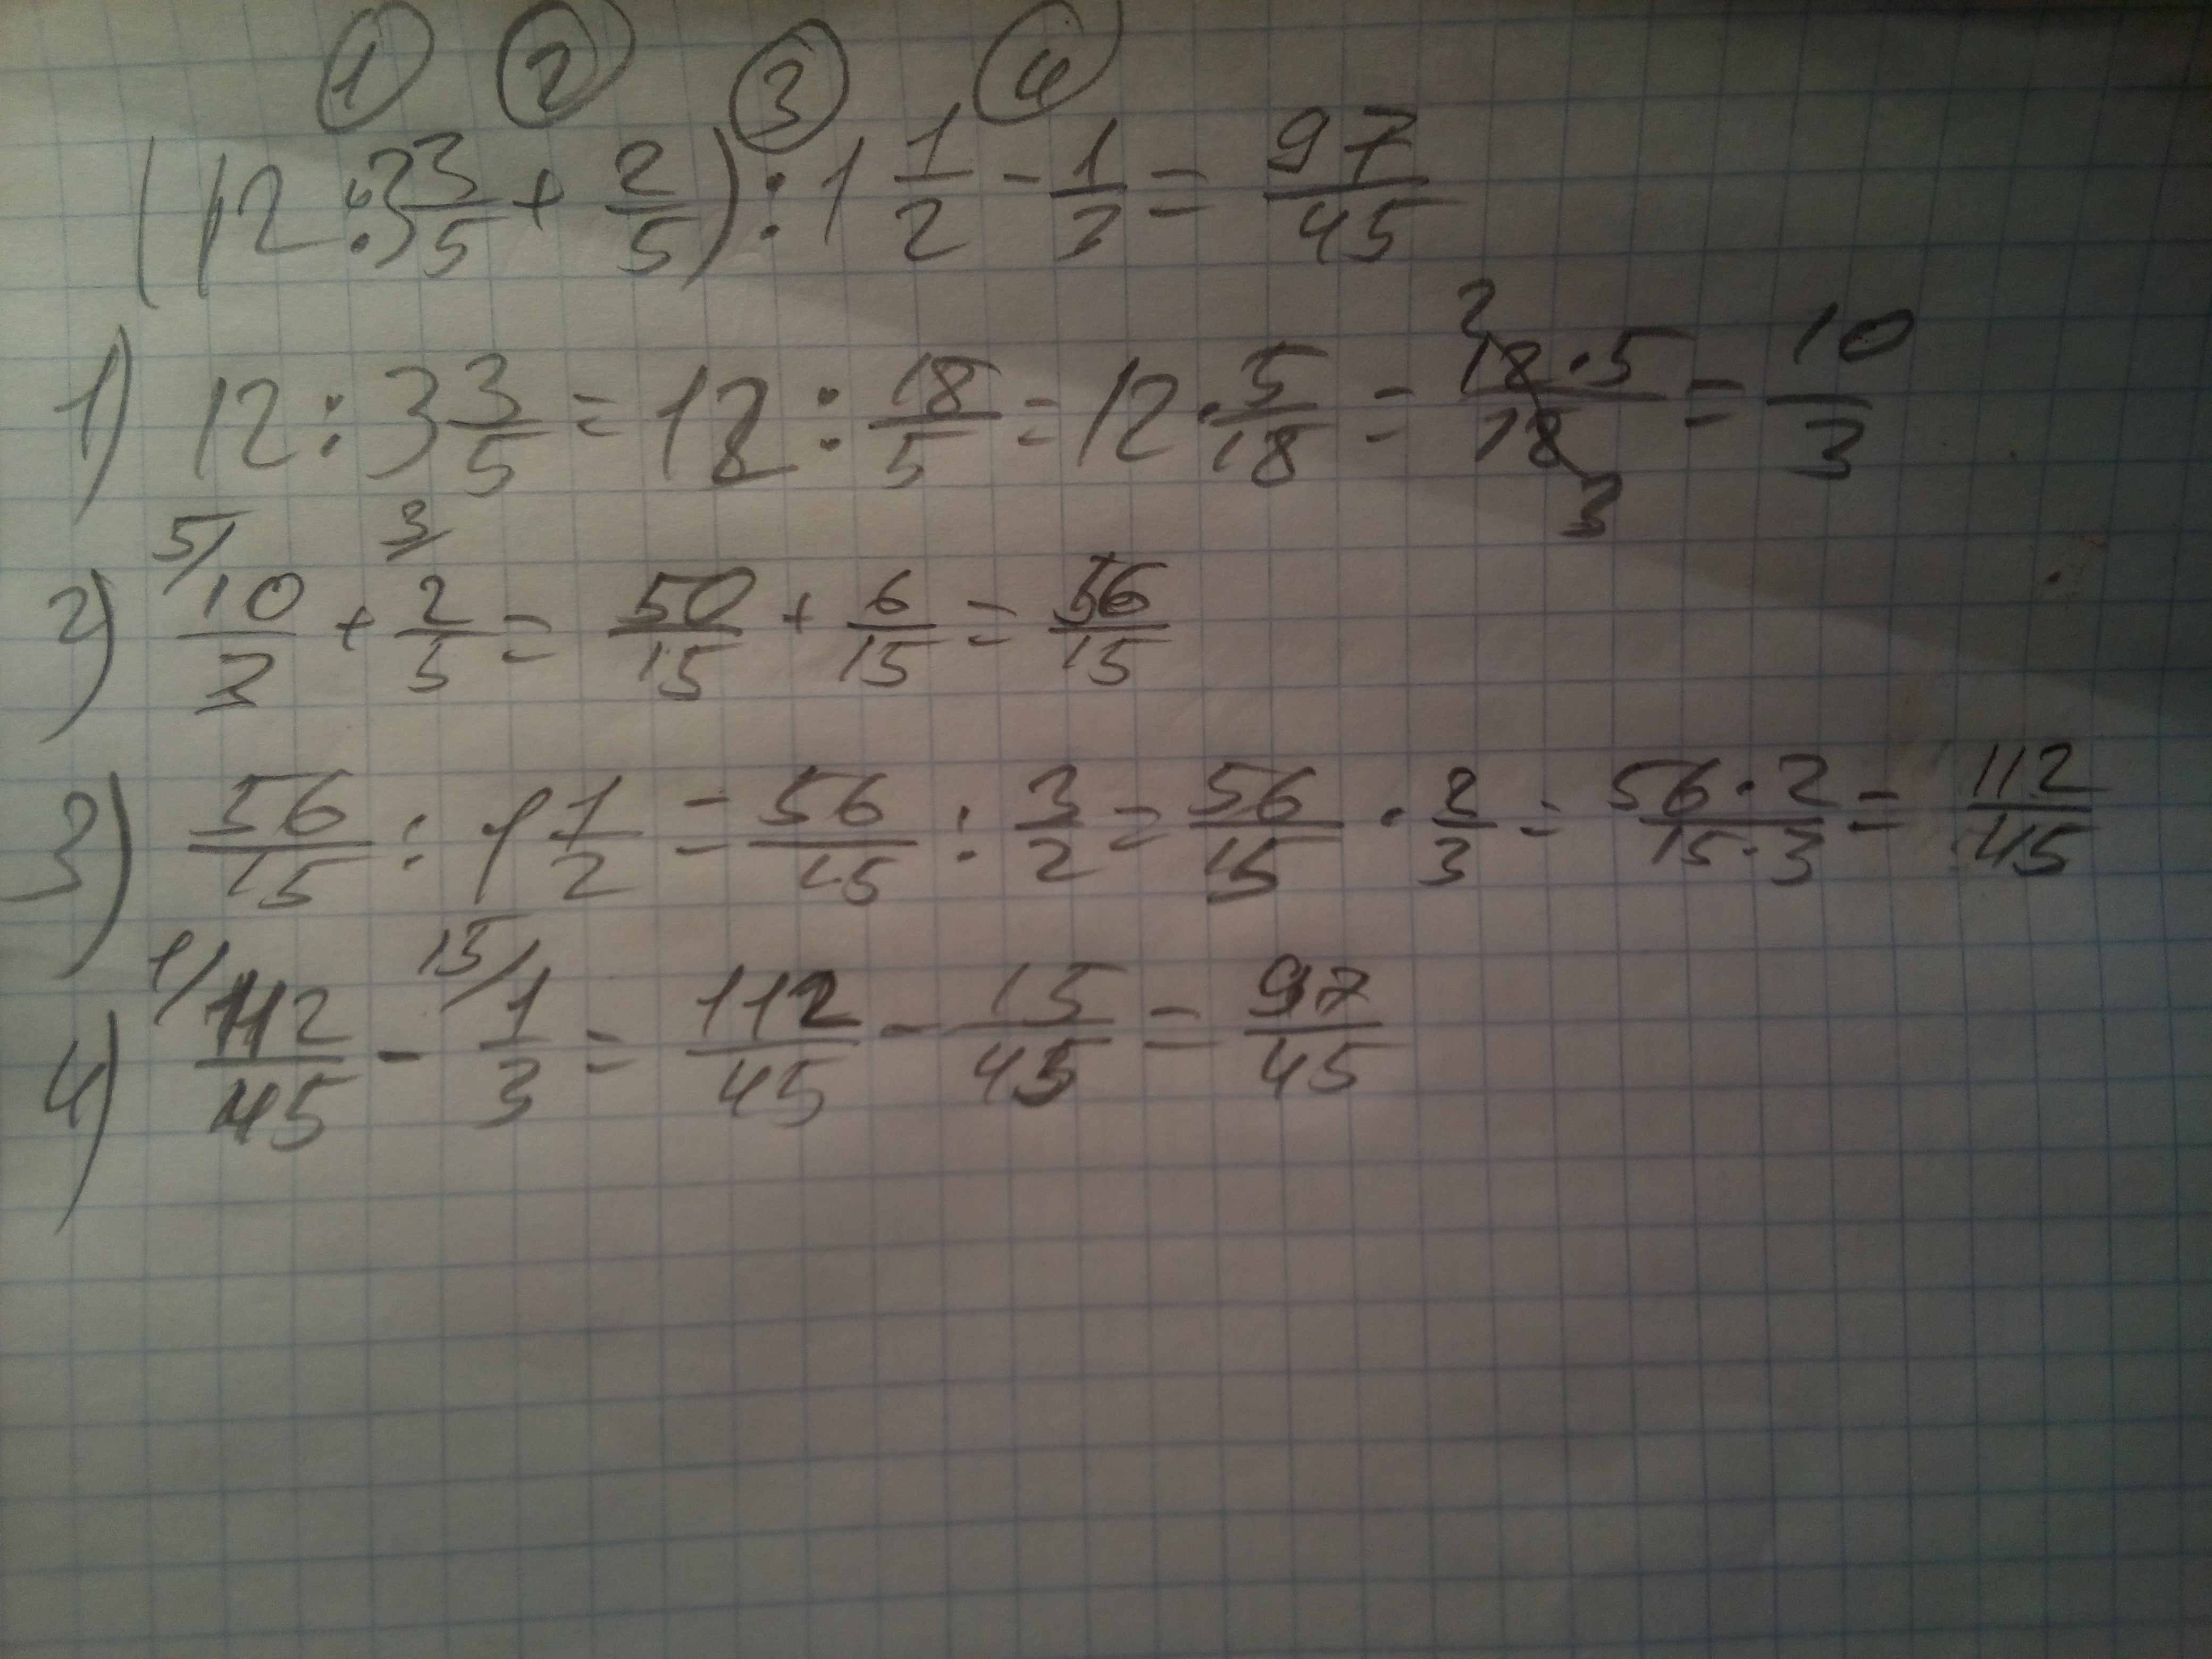 ① ② ③ ④
(12 : 3 3/5 + 2/5) : 1 1/2 - 1/3 = 97/45
1) 12 : 3 3/5 = 12 : 18/5 = 12 · 5/18 = 12·5/18 = 10/3
2) 10/3 + 2/5 = 50/15 + 6/15 = 56/15
3) 56/15 : 1 1/2 = 56/15 : 3/2 = 56/15 · 2/3 = 56·2/15·3 = 112/45
4) 112/45 - 1/3 = 112/45 - 15/45 = 97/45